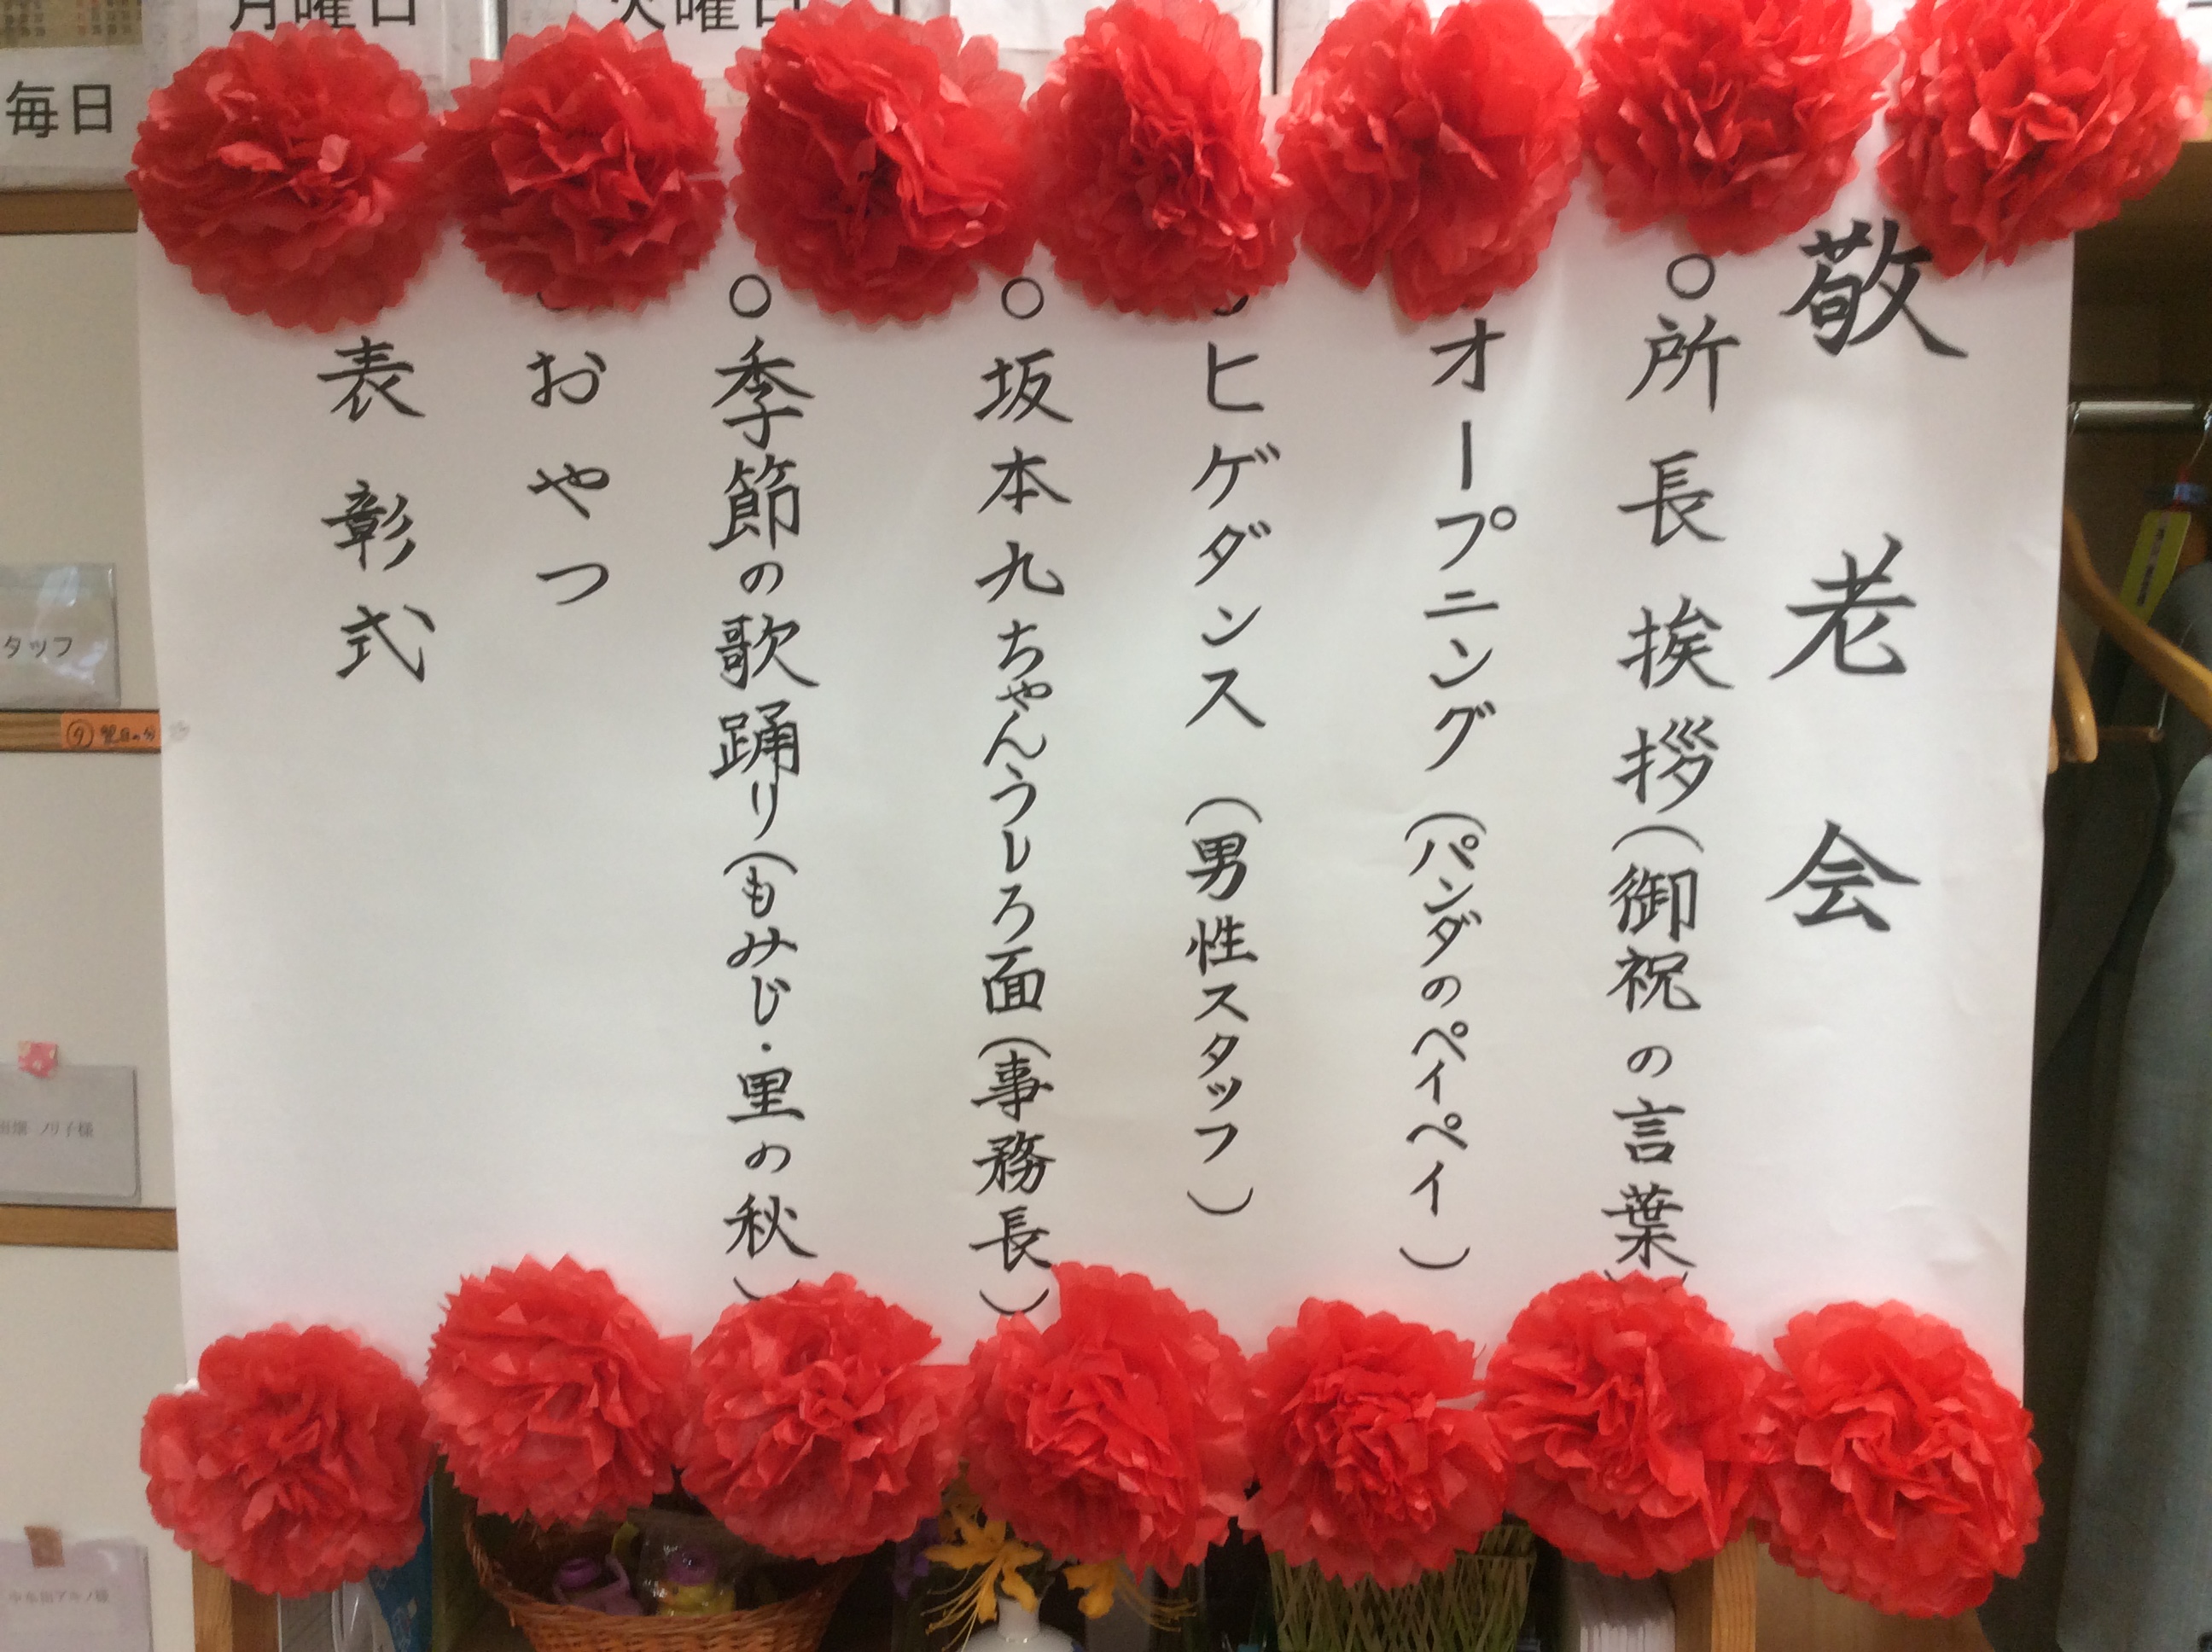 敬老会
○所長挨拶(御祝の言葉)
オープニング(パンダのペイペイ)
ヒゲダンス(男性スタッフ)
○坂本九ちゃんうしろ面(事務長)
○季節の歌踊り(もみじ・里の秋)
おやつ
表彰式
月曜日
火曜日
毎日
タッフ
⑨翌日の分
ノリ子様